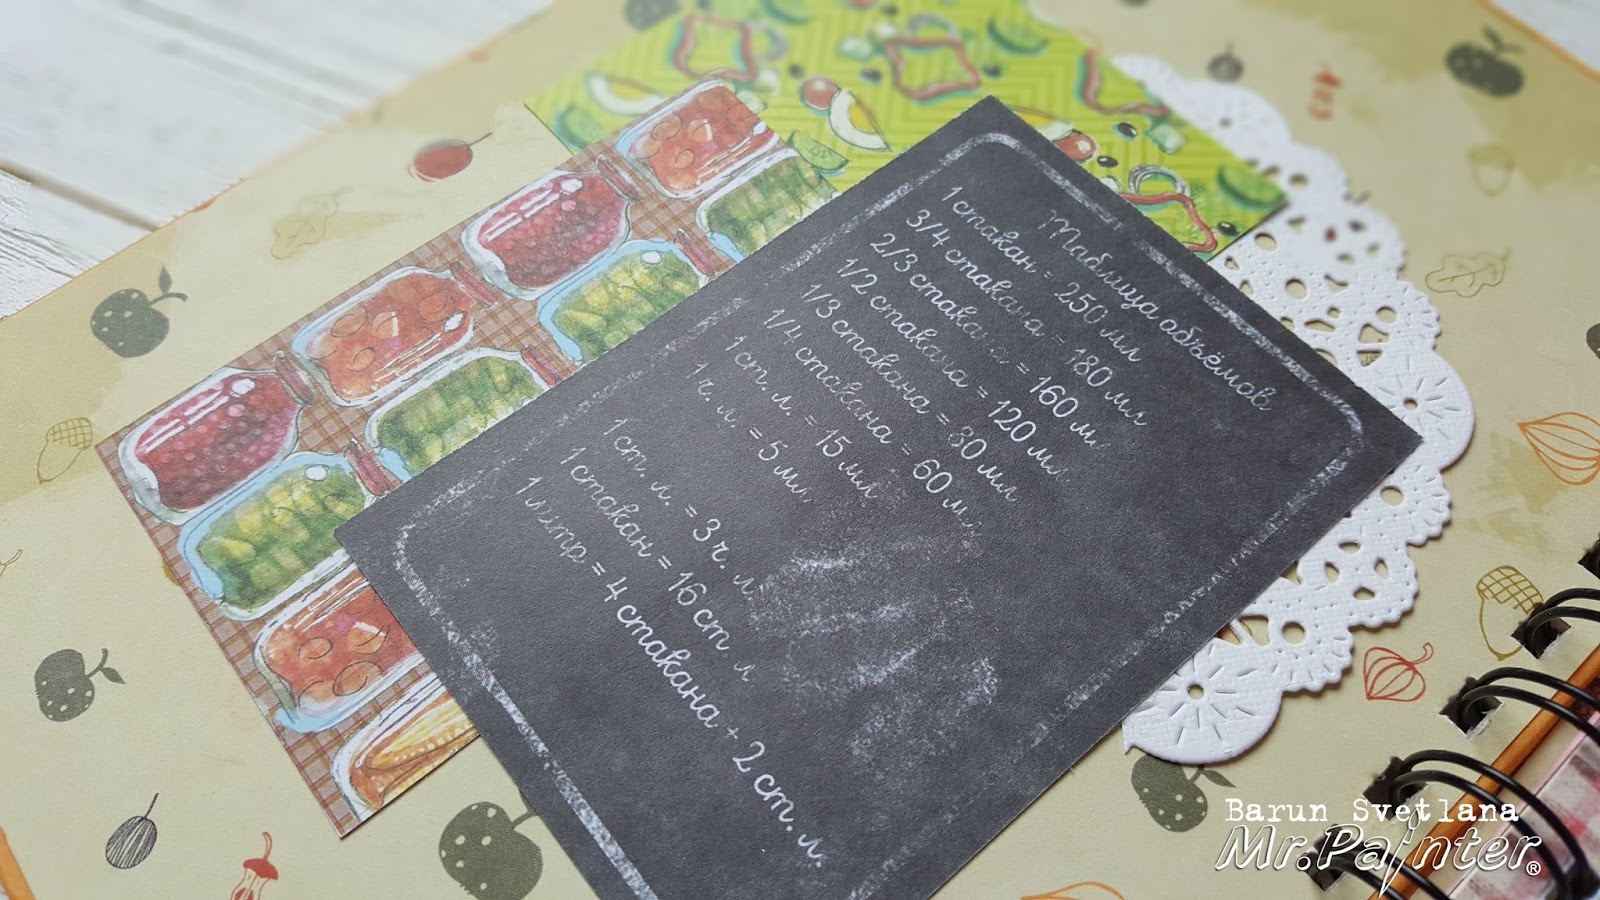 Таблица объёмов
1 стакан = 250 мл
3/4 стакана = 180 мл
2/3 стакана = 160 мл
1/2 стакана = 120 мл
1/3 стакана = 80 мл
1/4 стакана = 60 мл
1 ст. л. = 15 мл
1 ч. л. = 5 мл
1 ст. л. = 3 ч. л.
1 стакан = 16 ст. л.
1 литр = 4 стакана + 2 ст. л.
Barun Svetlana
Mr.Painter®